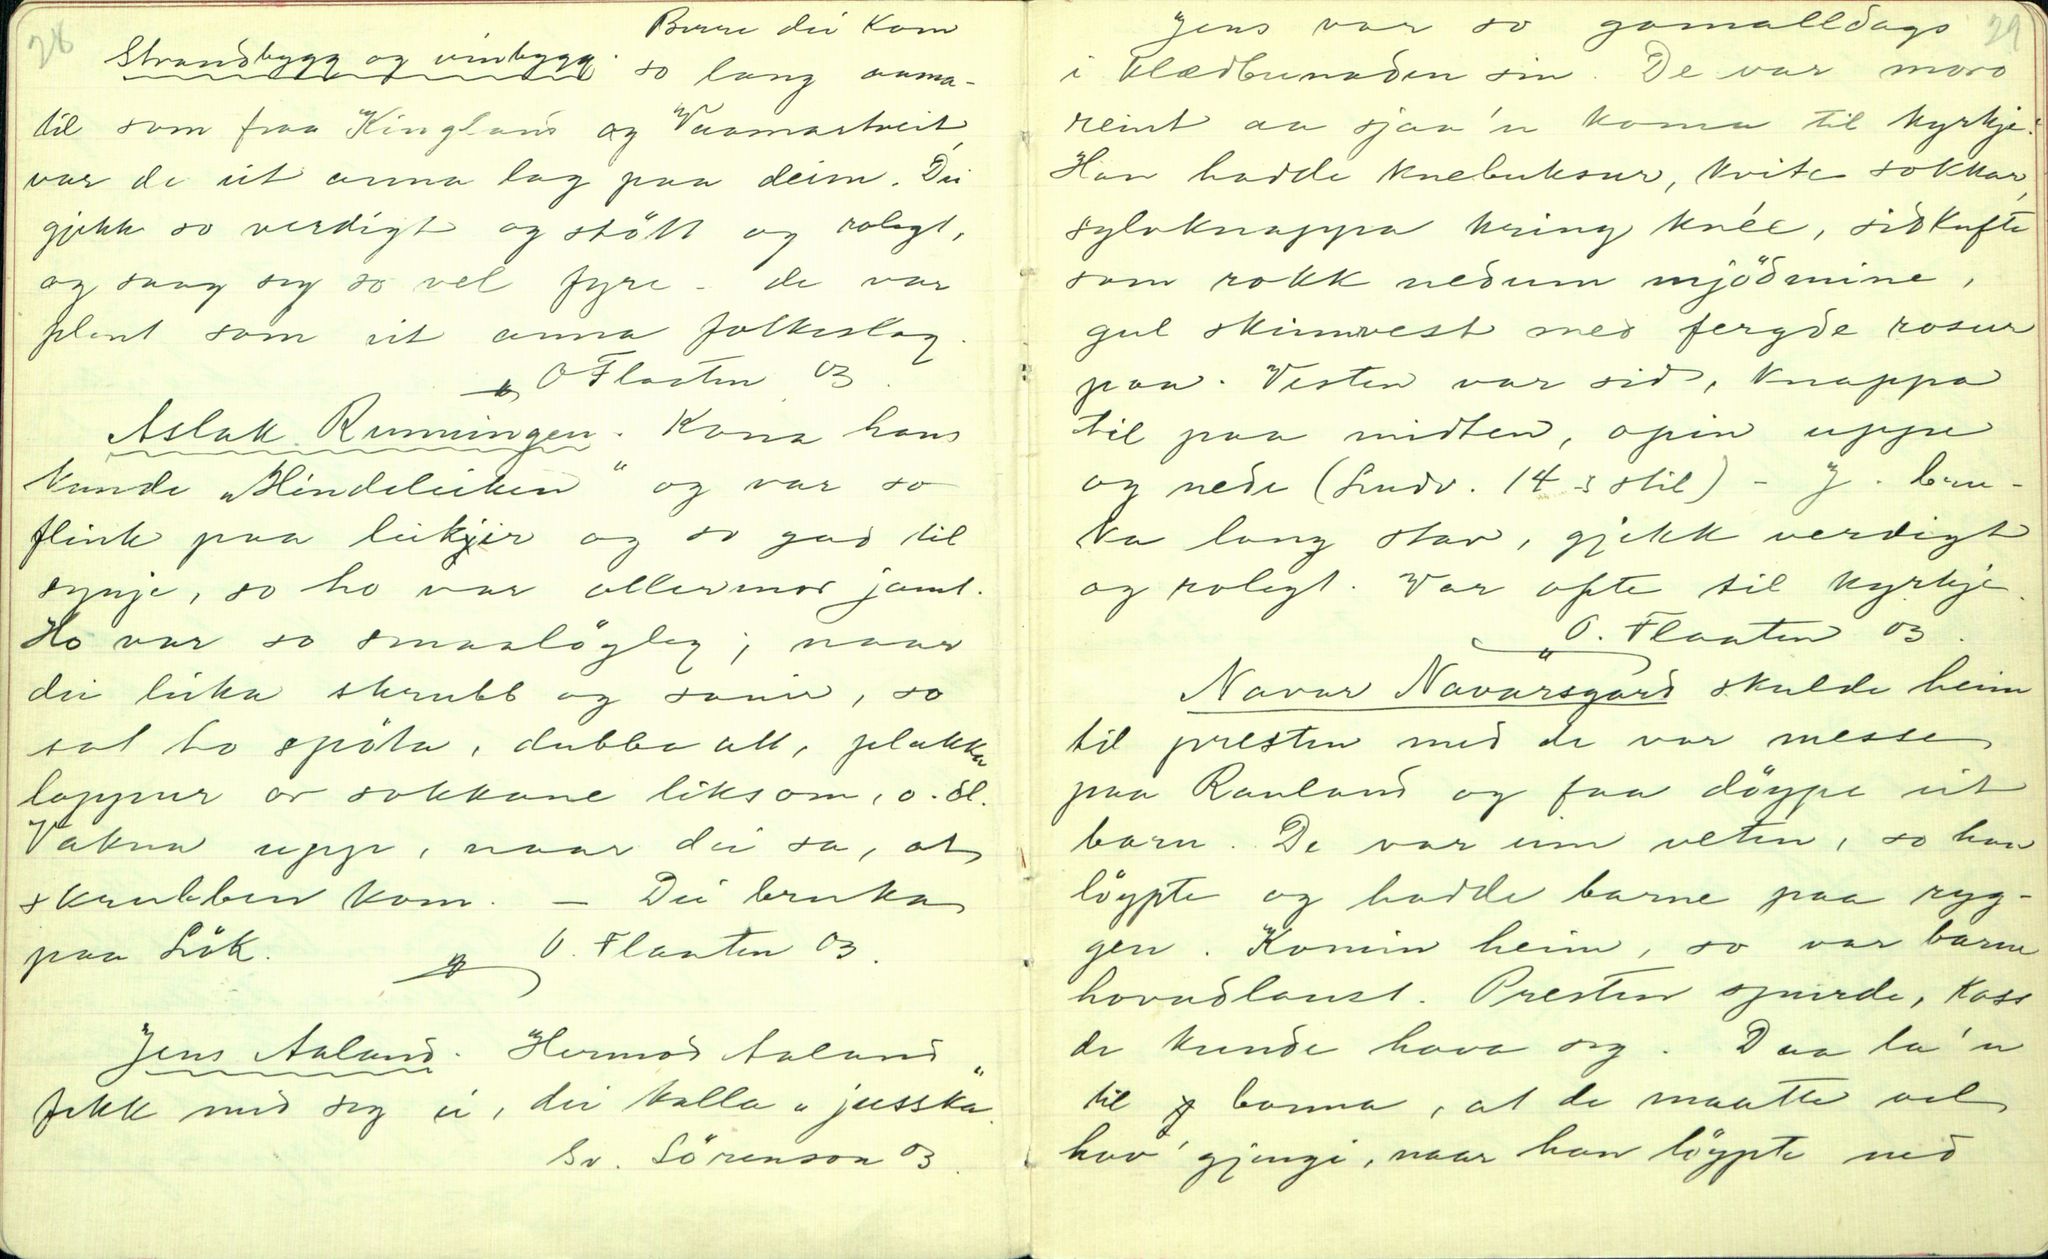 28
Strandbygg og vinbygg. Berre dei kom
so lang aama-
til som fraa Kingland og Vaamartveit,
var de eit anna lag paa deim. Dei
gjekk so verdigt og stött og rolegt,
og saag seg so vel fyre - de var
plent som eit anna folkeslag.
O Flaaten 03.
Aslak Runningen. Kona hans
kunde „Hindeleiken" og var so
flink paa leikjir og so god til
syngje, so ho var allermod jamt.
Ho var so smaalögleg; naar
dei leika skrubb og sauir, so
sat ho spöta, dubba att, plukka
loppur or sokkane liksom, o. sl.
Vakna upp, naar dei sa, at
skrubben kom. — Dei bruka
paa Lök. O. Flaaten 03.
Jens Aaland. Hermod Aaland
fekk med seg ei, dei kalla „jusska".
Sv. Sörenson 03.
29
Jens var so gamalldags
i klædbunaden sin. De var moro
reint aa sjaa'n koma til kyrkje:
Han hadde knebuksur, kvite sokkar,
sylvknappa kring knée, sidkufte
som rokk nedum mjödmine,
gul skinnvest med fergde rosur
paa. Vesten var sid, knappa
til paa midten, opin uppe
og nede (Ludv. 14 s stil) - J. bru-
ka lang stav, gjekk verdigt
og rolegt. Var ofte til kyrkje.
O. Flaaten 03.
Navar Navarsgard skulde heim
til presten med de var messe
paa Rauland og faa döype eit
barn. De var um veten, so han
löypte og hadde barne paa ryg-
gen. Komin heim, so var barne
hovudlaust. Presten spurde, koss
de kunde hava seg. Daa la'n
til banna, at de maatte vel
hav' gjengi, naar han löypte ned